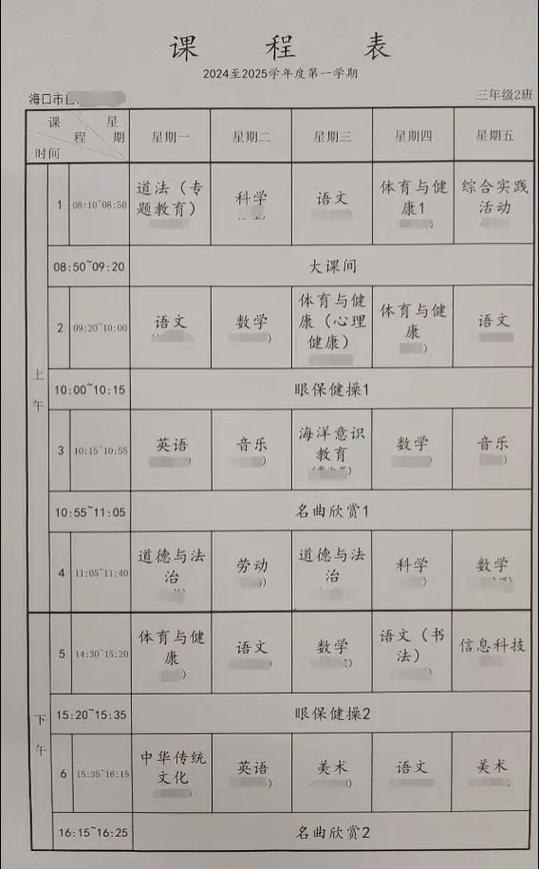 课 程 表
2024至2025学年度第一学期
海口市
三年级2班
课程 星期 时间 星期一 星期二 星期三 星期四 星期五
上午
1 08:10~08:50 道法（专题教育） 科学 语文 体育与健康1 综合实践活动
08:50~09:20 大课间
2 09:20~10:00 语文 数学 体育与健康（心理健康） 体育与健康 语文
10:00~10:15 眼保健操1
3 10:15~10:55 英语 音乐 海洋意识教育 数学 音乐
10:55~11:05 名曲欣赏1
4 11:05~11:40 道德与法治 劳动 道德与法治 科学 数学
下午
5 14:30~15:20 体育与健康 语文 数学 语文（书法） 信息科技
15:20~15:35 眼保健操2
6 15:35~16:15 中华传统文化 英语 美术 语文 美术
16:15~16:25 名曲欣赏2